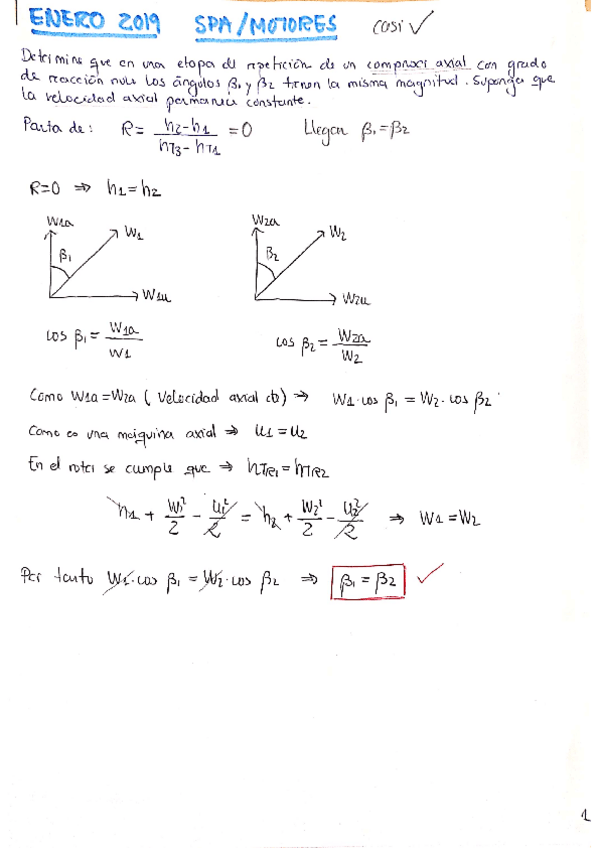 ENERO 2019 SPA/MOTORES casi ✓
Determine que en una etapa de repetición de un compresor axial con grado
de reacción nulo los ángulos β₁ y β₂ tienen la misma magnitud. Suponga que
la velocidad axial permanece constante.
Parta de: R = (h2-h1)/(hT3-hT1) = 0 Llegar β₁=β₂
R=0 ⇒ h1=h2
W1a W1 β₁ W1u
W2a W2 β₂ W2u
cos β₁ = W1a/W1 cos β₂ = W2a/W2
Como W1a=W2a (Velocidad axial cte) ⇒ W1·cos β₁ = W2·cos β2
Como es una máquina axial ⇒ u1=u2
En el rotor se cumple que ⇒ hTR1=hTR2
h1 + W1²/2 - U1²/2 = h2 + W2²/2 - U2²/2 ⇒ W1=W2
Por tanto W1·cos β₁ = W2·cos β2 ⇒ β₁ = β2 ✓
1